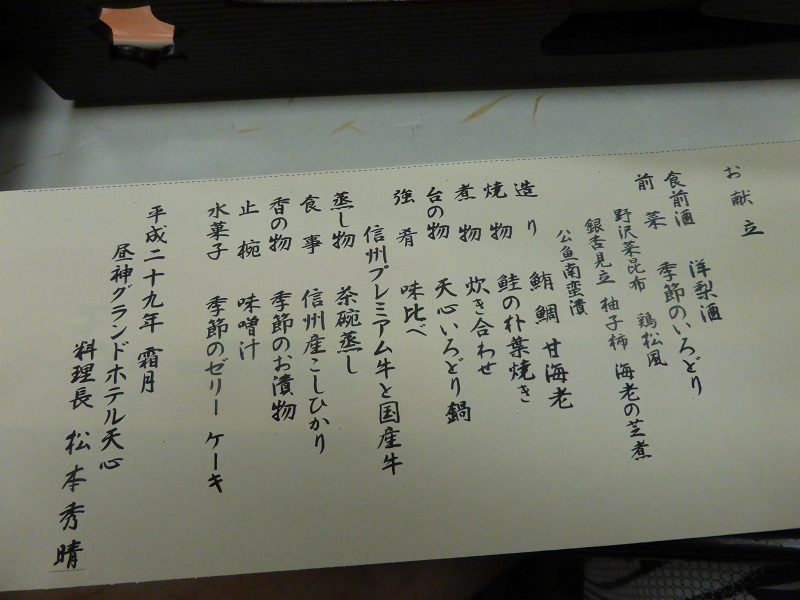 お献立
食前酒 洋梨酒
前菜 季節のいろどり
野沢菜昆布 鶏松風
銀杏見立 柚子柿 海老の芝煮
公魚南蛮漬
造り 鮪 鯛 甘海老
焼物 鮭の朴葉焼き
煮物 炊き合わせ
台の物 天心いろどり鍋
強肴 味比べ
信州プレミアム牛と国産牛
蒸し物 茶碗蒸し
食事 信州産こしひかり
香の物 季節のお漬物
止椀 味噌汁
水菓子 季節のゼリー ケーキ
平成二十九年 霜月
昼神グランドホテル天心
料理長 松本秀晴